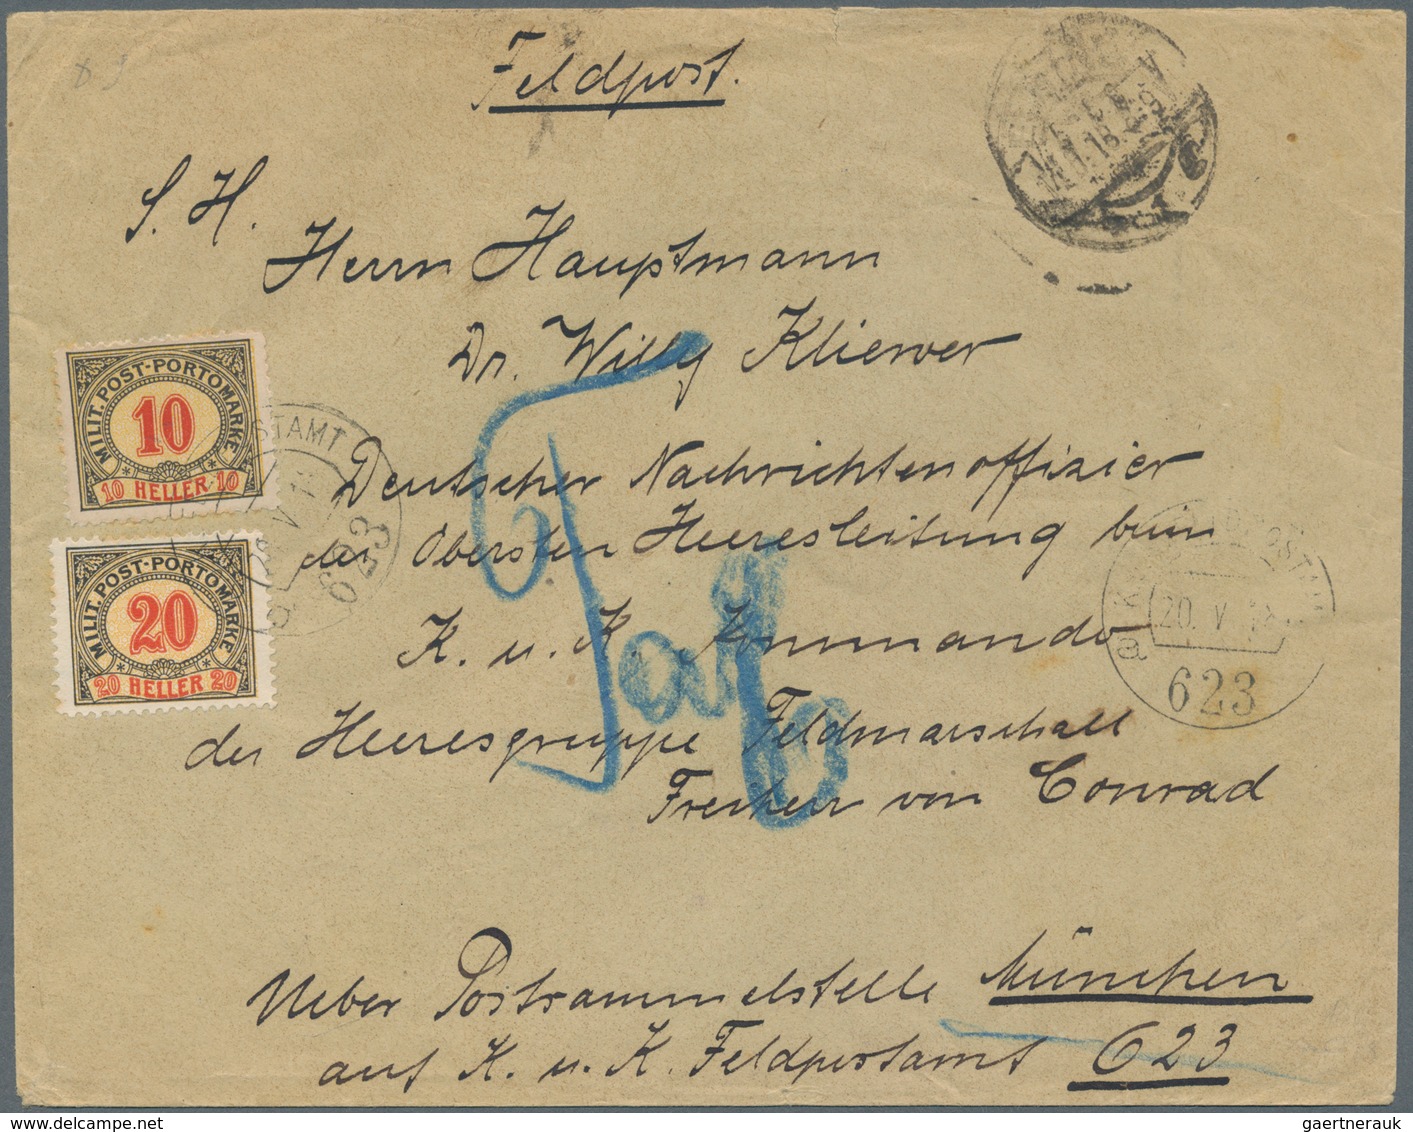 Feldpost.
S. H.
Herrn Hauptmann
Dr. Willy Kliewer
Deutscher Nachrichtenoffizier
der Obersten Heeresleitung beim
K. u. K. Kommando
der Heeresgruppe Feldmarschall
Freiherr von Conrad
Ueber Postsammelstelle München
auf K. u. K. Feldpostamt 623
MILIT. POST-PORTOMARKE
10
10 HELLER 10
MILIT. POST-PORTOMARKE
20
20 HELLER 20
STAMT
623
20. V. 18
623
gaertnerauk